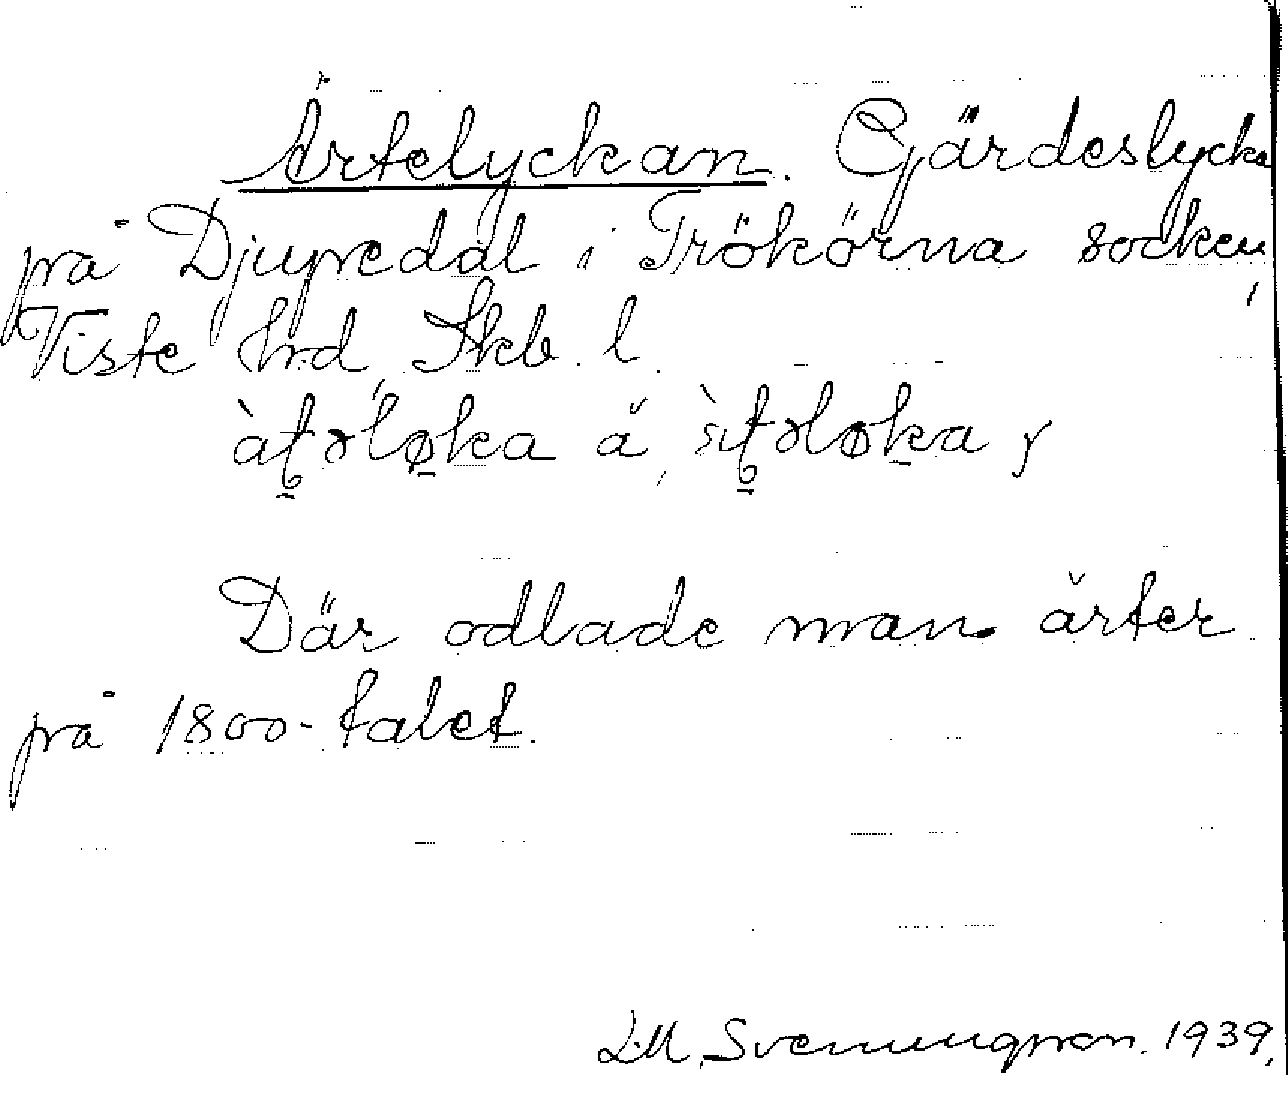 Ärtelyckan. Gärdeslycka
på Djupedal i Trökörna socken,
Viste hrd Skb. l.
Där odlade man ärter
på 1800-talet.
L.M. Svenungsson. 1939.